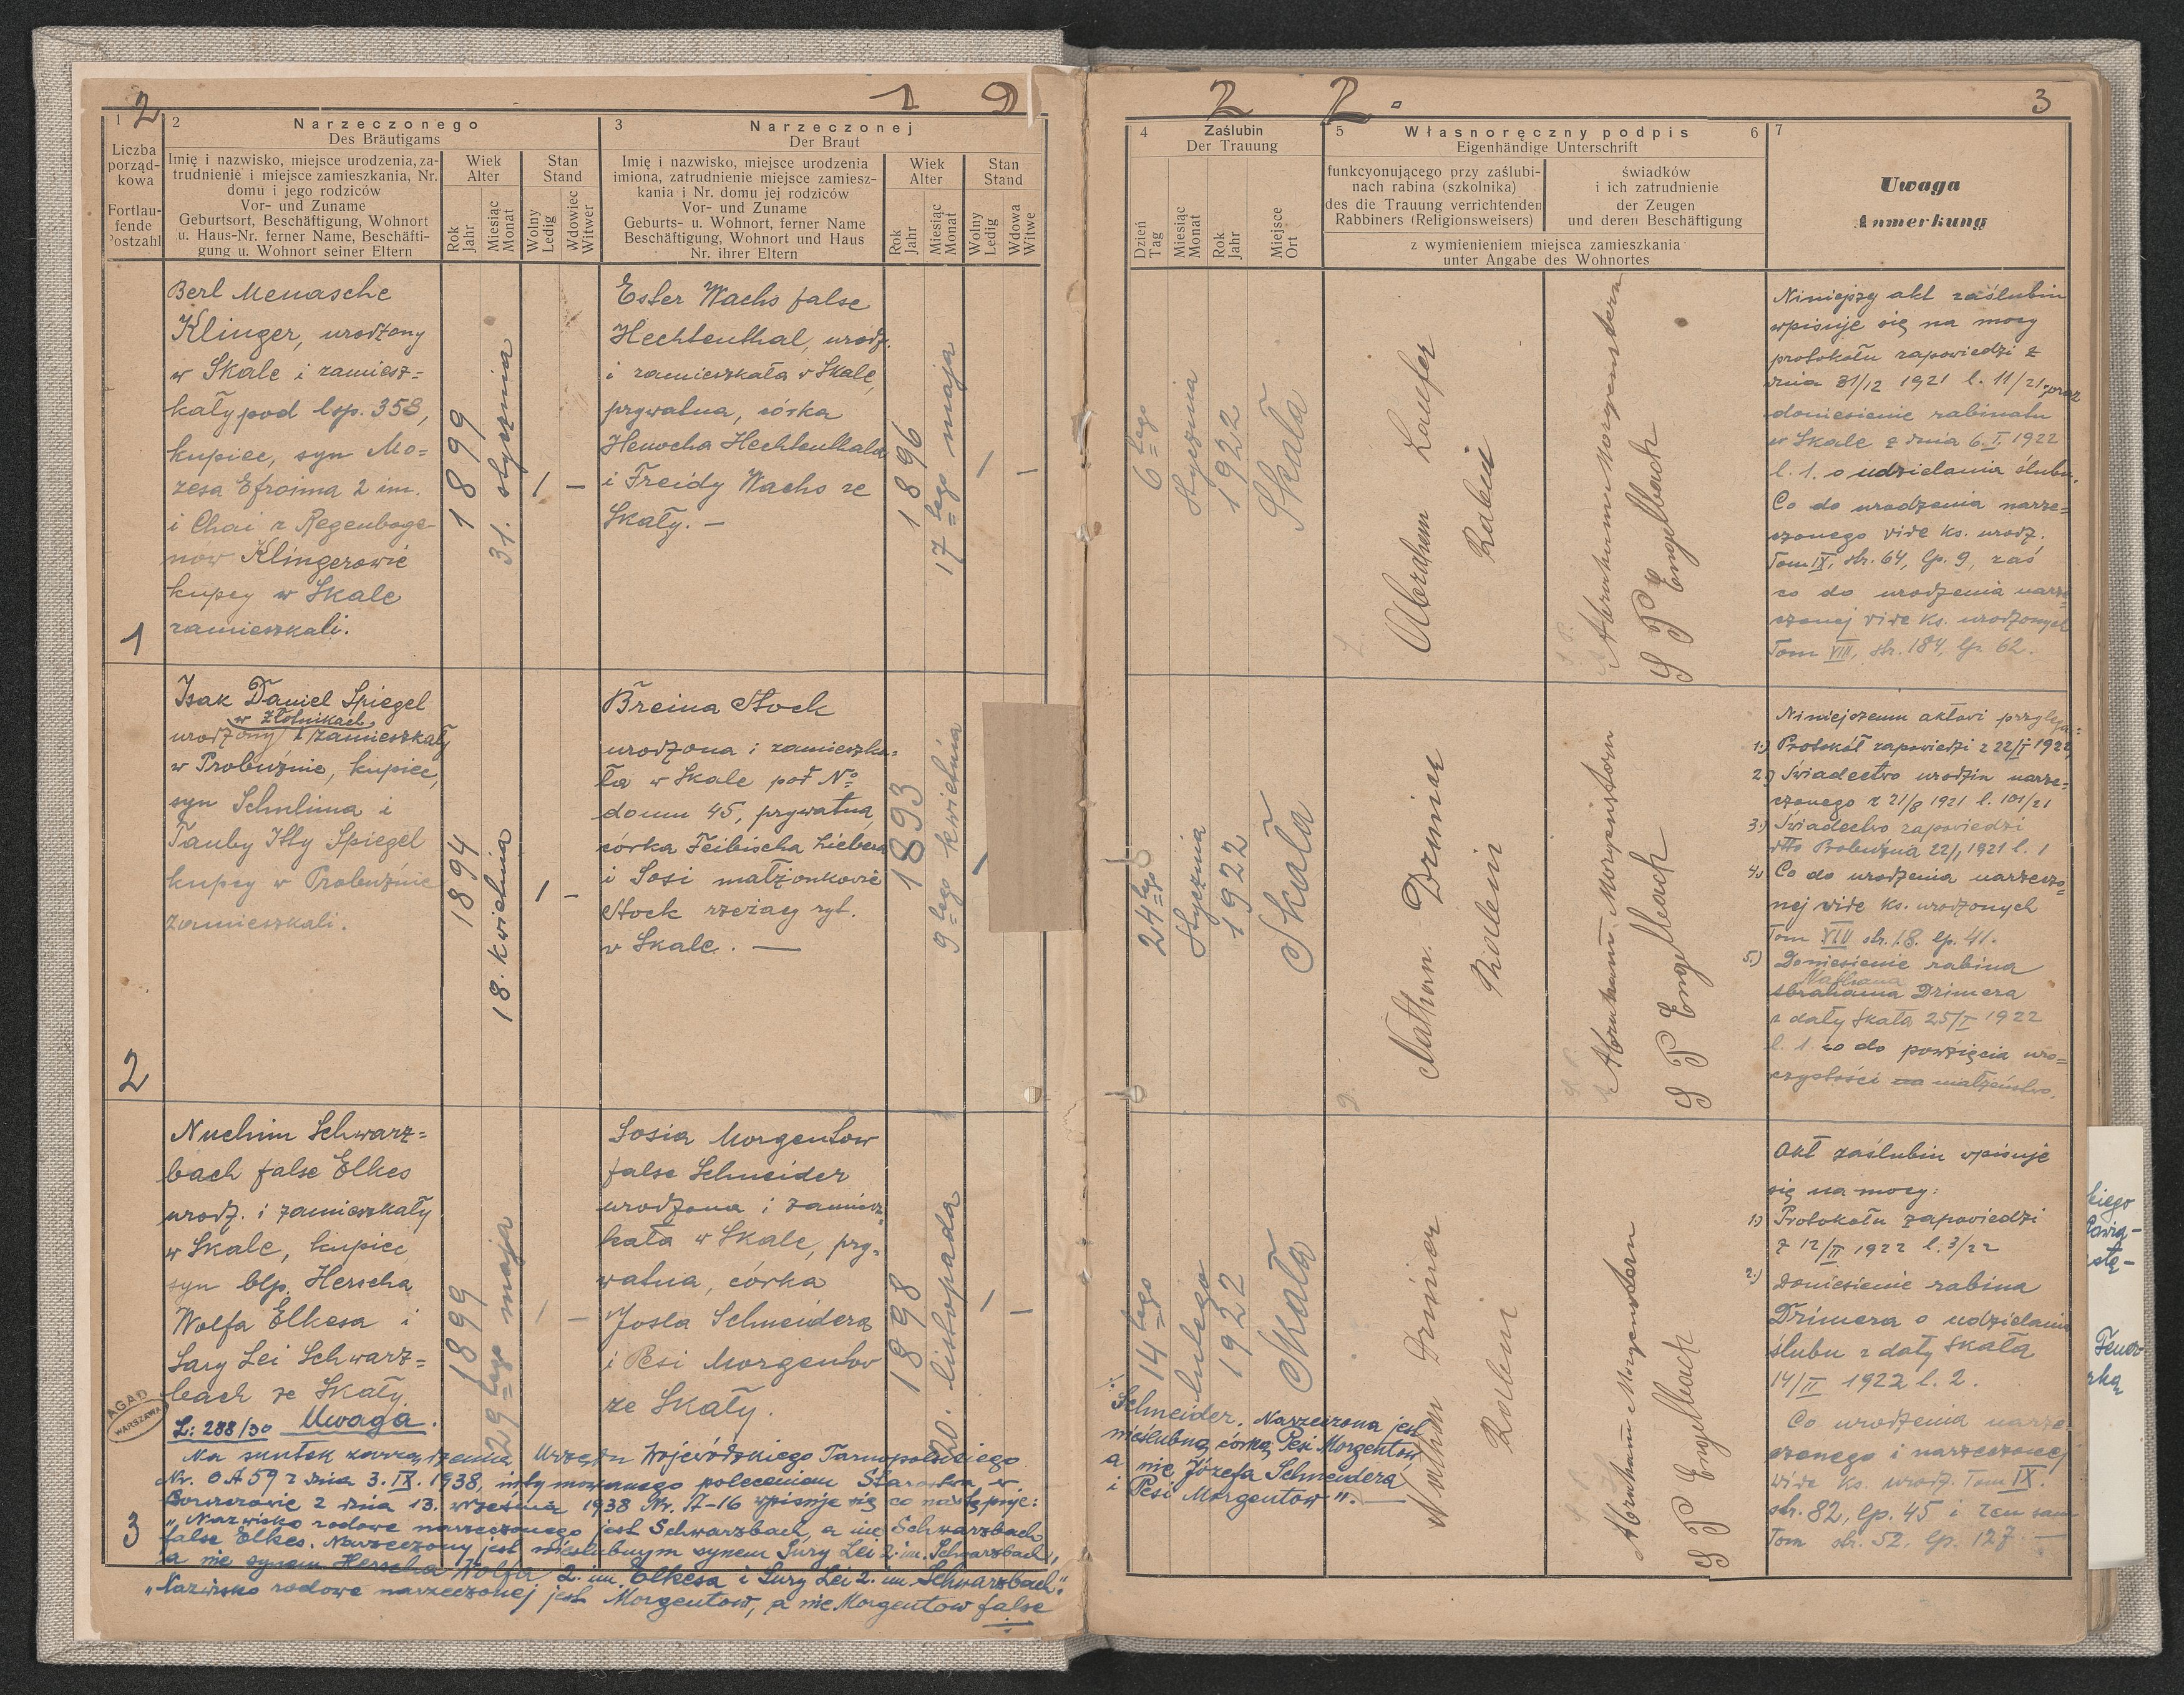 2
1 9
1
Liczba
porząd-
kowa
Fortlau-
fende
Postzahl
2
Narzeczonego
Des Bräutigams
Imię i nazwisko, miejsce urodzenia, za-
trudnienie i miejsce zamieszkania, Nr.
domu i jego rodziców
Vor- und Zuname
Geburtsort, Beschäftigung, Wohnort
u. Haus-Nr. ferner Name, Beschäfti-
gung u. Wohnort seiner Eltern
Wiek
Alter
Rok
Jahr
Miesiąc
Monat
Stan
Stand
Wolny
Ledig
Wdowiec
Witwer
3
Narzeczonej
Der Braut
Imię i nazwisko, miejsce urodzenia
imiona, zatrudnienie miejsce zamiesz-
kania i Nr. domu jej rodziców
Vor- und Zuname
Geburts- u. Wohnort, ferner Name
Beschäftigung, Wohnort und Haus
Nr. ihrer Eltern
Wiek
Alter
Rok
Jahr
Miesiąc
Monat
Stan
Stand
Wolny
Ledig
Wdowa
Witwe
1
Berl Menasche
Klinger, urodzony
w Skale i zamiesz=
kały pod lsp. 358,
kupiec, syn Mo=
zesa Efroima 2 im.
i Chai z Regenboge-
now Klingerowie
kupcy w Skale
zamieszkali.
1899
31. stycznia
/
–
Ester Wachs false
Hechtenthal, urodz.
i zamieszkała w Skale,
prywatna, córka
Henocha Hechtenthala
i Freidy Wachs ze
Skały. –
1896
17=tego maja
/
–
2
Isak Daniel Spiegel
w Złotnikach
urodzony i zamieszkały
w Probużnie, kupiec,
syn Schulima i
Tauby Itty Spiegel
kupcy w Probużnie
zamieszkali.
1894
18. kwietnia
/
–
Breina Stock
urodzona i zamieszka=
ła w Skale pod No
domu 45, prywatna,
córka Feibischa Liebera
i Sosi małżonkowie
Stock rzezacy ryt.
w Skale. —
1893
9=tego kwietnia
/
3
Nuchim Schwarz=
bach false Elkes
urodz. i zamieszkały
w Skale, kupiec
syn blp. Herscha
Wolfa Elkesa i
Sary Lei Schwarz=
bach ze Skały.
1899
29=tego maja
/
–
Sosia Morgentow
false Schneider
urodzona i zamiesz=
kała w Skale, pry=
watna, córka
Josla Schneidera
i Pesi Morgentow
ze Skały.
1898
20. listopada
/
–
AGAD
WARSZAWA
L: 288/30 Uwaga.
Na skutek zarządzenia Urzędu Wojewódzkiego Tarnopolskiego
Nr. OA 59 z dnia 3. IX. 1938, intymowanego poleceniem Starostwa w
Borszczowie z dnia 13. września 1938 Nr. A-16 wpisuje się co następuje:
„Nazwisko rodowe narzeczonego jest Schwarzbach, a nie Schwarzbach
false Elkes. Narzeczony jest nieślubnym synem Sury Lei 2. im. Schwarzbach,
a nie synem Herscha Wolfa 2. im. Elkesa i Sury Lei 2. im. Schwarzbach."
„Nazwisko rodowe narzeczonej jest Morgentow, a nie Morgentow false
2 2.
3
4
Zaślubin
Der Trauung
Dzień
Tag
Miesiąc
Monat
Rok
Jahr
Miejsce
Ort
5 Własnoręczny podpis 6
Eigenhändige Unterschrift
funkcyonującego przy zaślubi-
nach rabina (szkolnika)
des die Trauung verrichtenden
Rabbiners (Religionsweisers)
świadków
i ich zatrudnienie
der Zeugen
und deren Beschäftigung
z wymienieniem miejsca zamieszkania
unter Angabe des Wohnortes
7
Uwaga
Anmerkung
6=tego
Stycznia
1922
Skała
Abraham Laufer
Rabin
Abraham Morgenstern
S P Engelbach
Niniejszy akt zaślubin
wpisuje się na mocy
protokołu zapowiedzi z
dnia 31/12 1921 l. 11/21 oraz
doniesienie rabinatu
w Skale z dnia 6.I.1922
l. 1. o udzielaniu ślubu.
Co do urodzenia narze=
czonego vide ks. urodz.
Tom IX, str. 64, lp. 9, zaś
co do urodzenia narze
czonej vide ks. urodzonych
Tom VIII, str. 184, lp. 62.
24=tego
Stycznia
1922
Skała
Nathan Drimer
Rabin
Abraham Morgenstern
S P Engelbach
Niniejszemu aktowi przylega:
1.) Protokół zapowiedzi z 22/I 1922
2.) Świadectwo urodzin narze=
czonego z 21/8 1921 l. 101/21
3.) Świadectwo zapowiedzi
dtto Probużna 22/1 1921 l. 1
4.) Co do urodzenia narzeczo=
nej vide ks. urodzonych
Tom VIII str. 18. lp. 41.
5.) Doniesienie rabina
Nathana
Abrahama Drimera
z daty Skała 25/I 1922
l. 1. co do powzięcia uro=
czystości na małżeństwo.
14=tego
lutego
1922
Skała
Nathan Drimer
Rabin
Abraham Morgenstern
S P Engelbach
Akt zaślubin wpisuje
się na mocy:
1.) Protokołu zapowiedzi
z 12/II 1922 l. 3/22
2.) Doniesienie rabina
Drimera o udzielaniu
ślubu z daty Skała
14/II 1922 l. 2.
Co urodzenia narze
czonego i narzeczonej
vide ks. urodz. Tom IX.
str. 82, lp. 45 i ten sam
Tom str. 52, lp. 127. —
Schneider. Narzeczona jest
nieślubną córką Pesi Morgentow
a nie Józefa Schneidera
i Pesi Morgentow". —